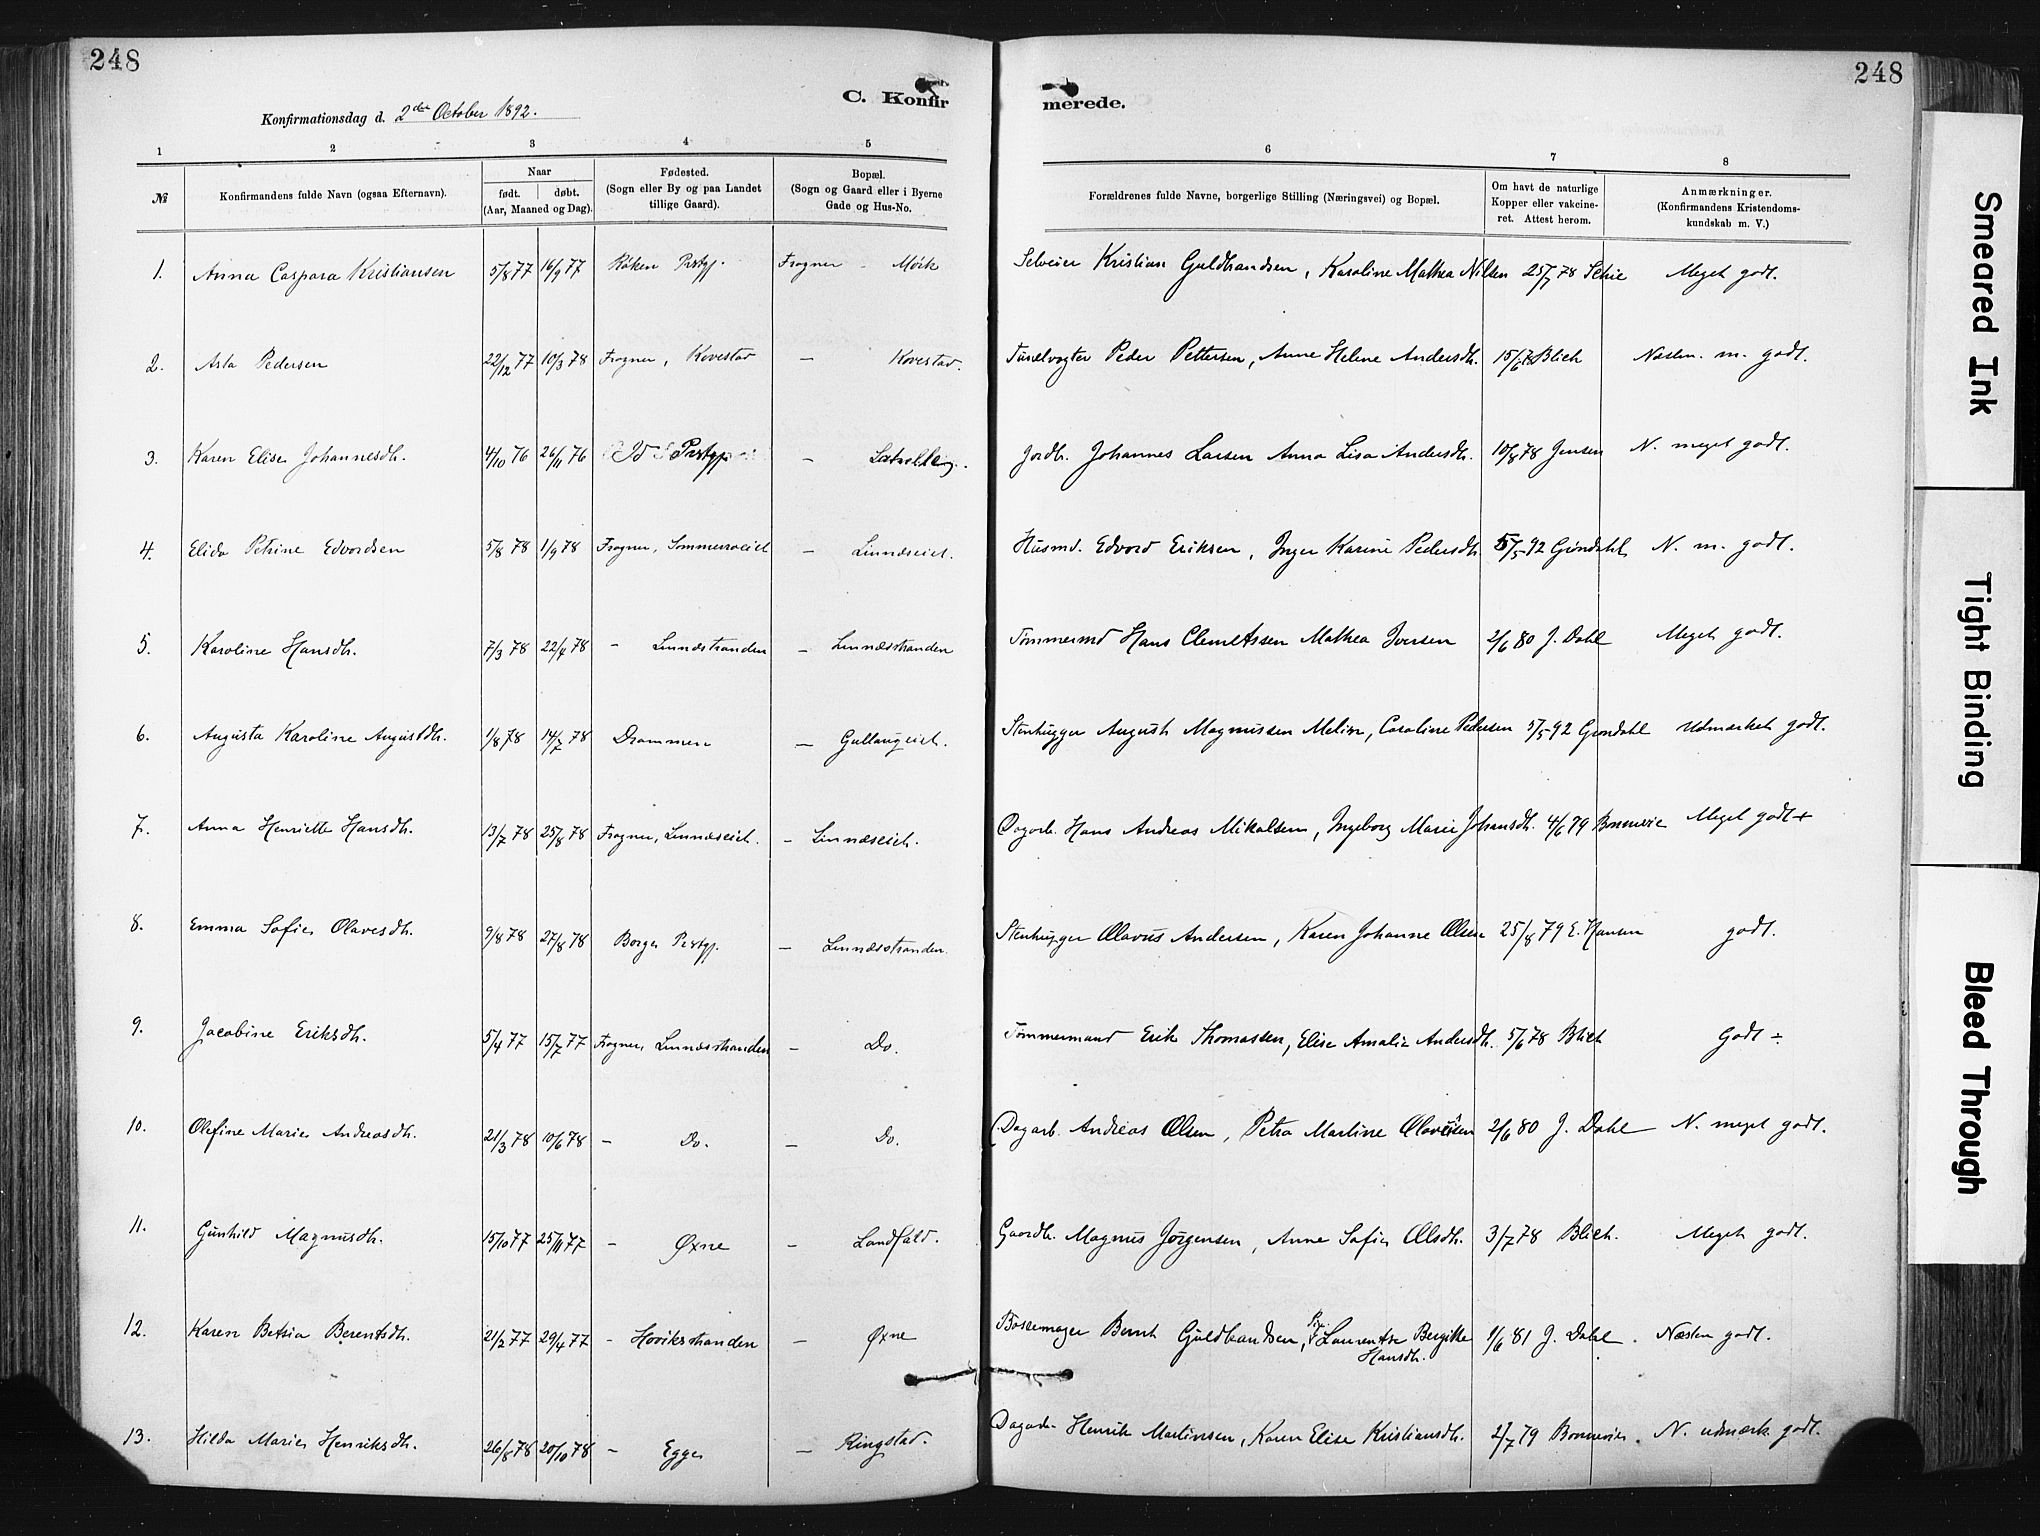 248
C. Konfir
Konfirmationsdag d. 2den October 1892.
1 2 3 4 5
№ Konfirmandens fulde Navn (ogsaa Efternavn). Naar født. døbt. (Aar, Maaned og Dag). Fødested. (Sogn eller By og paa Landet tillige Gaard). Bopæl. (Sogn og Gaard eller i Byerne Gade og Hus-No.
1. Anna Caspara Kristiansen 5/8 77 16/9 77 Røken Prstgj. Frogner - Mörk
2. Asta Pedersen 22/12 77 10/3 78 Frogner, Kovestad — Kovestad.
3. Karen Elise Johannesdh. 4/10 76 26/11 76 Id Prstgj. —
4. Elida Petrine Edvardsen 5/8 78 1/9 78 Frogner, — Linnæseiet.
5. Karoline Hansdh. 7/3 78 22/4 78 - Linnæstranden — Linnæsstranden
6. Augusta Karoline Augustdh. 1/8 78 14/7 78 Drammen — Gullaugeiet.
7. Anna Henriette Hansdh. 13/7 78 25/8 78 Frogner, Linnæseiet. — Linnæseiet.
8. Emma Sofie Olavesdh. 9/8 78 27/8 78 Borge Prstgj. — Linnæsstranden.
9. Jacobine Eriksdh. 5/4 77 15/7 77 Frogner, Linnæsstranden — Do.
10. Olefine Marie Andreasdh. 21/3 78 10/6 78 — Do. — Do.
11. Gunhild Magnusdh. 15/10 77 25/11 77 — Øxne — Landfald.
12. Karen Betsia Berentsdh. 21/2 77 29/4 77 - Hoviksstranden — Øxne
13. Hilda Marie Henriksdh. 26/8 78 20/10 78 — Egge — Ringstad.
248
merede.
6 7 8
Forældrenes fulde Navne, borgerlige Stilling (Næringsvei) og Bopæl. Om havt de naturlige Kopper eller vakcineret. Attest herom. Anmærkninger. (Konfirmandens Kristendomskundskab m. V.)
Selveier Kristian Guldbrandsen, Karoline Mathea Nilsen 25/7 78 Schie Meget godt.
Peder Pettersen, Anne Helene Andersdh. 15/6 78 Blich Næsten m. godt.
Jordb. Johannes Larsen Anna Lisa Andersdh. 10/8 78 Jensen N. meget godt.
Husmd. Edvard Eriksen, Inger Karine Pedersdh. 5/5 92 Gröndahl N. m. godt.
Tömmermd Hans Clemetssen Mathea Iversen 2/6 80 J. Dahl Meget godt.
Stenhugger August Magnussen Melin, Caroline Pedersen 5/5 92 Gröndahl Udmærket godt.
Dagarb. Hans Andreas Mikalsen, Ingeborg Marie Johansdh. 4/6 79 Bonnevie Meget godt +
Stenhugger Olavus Andersen, Karen Johanne Olsen 25/8 79 E. Hansen godt.
Tömmermand Erik Thomassen, Elise Amalie Andersdh. 5/6 78 Blich Godt ÷
Dagarb. Andreas Olsen, Petra Martine Olavesen 2/6 80 J. Dahl N. meget godt.
Gaardb. Magnus Jörgensen, Anne Sofie Olsdh. 3/7 78 Blich. Meget godt.
Bössemager Bernt Guldbrandsen, Laurentse Bergitte Hansdh. 1/6 81 J. Dahl. Næsten godt.
Dagarb. Henrik Martinsen, Karen Elise Kristiansdh. 2/7 79 Bonnevie. N. udmærk. godt.
Smeared Ink
Tight Binding
Bleed Through